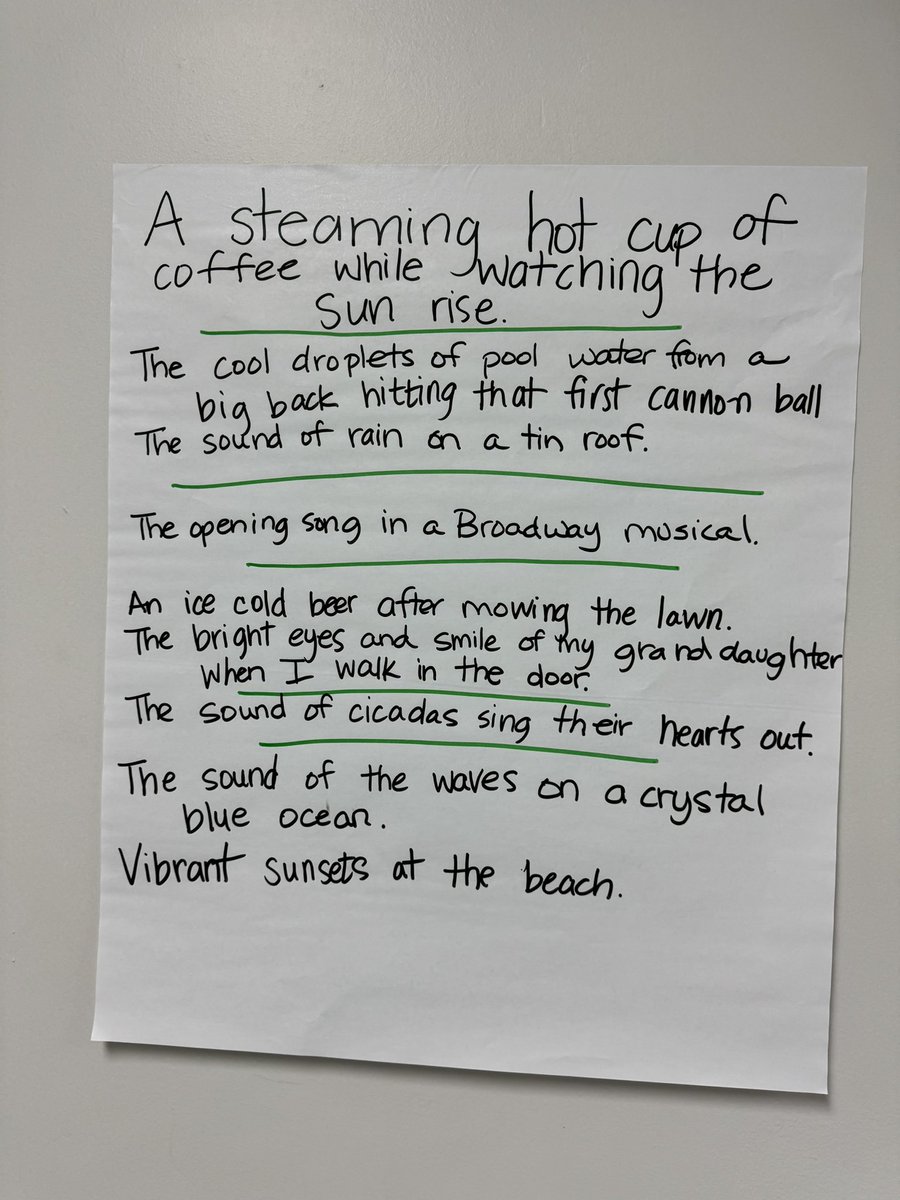 A steaming hot cup of
coffee while watching the
Sun rise.
The cool droplets of pool water from a
big back hitting that first cannon ball
The sound of rain on a tin roof.
The opening song in a Broadway musical.
An ice cold beer after mowing the lawn.
The bright eyes and smile of my grand daughter
when I walk in the door.
The sound of cicadas sing their hearts out.
The sound of the waves on a crystal
blue ocean.
Vibrant sunsets at the beach.